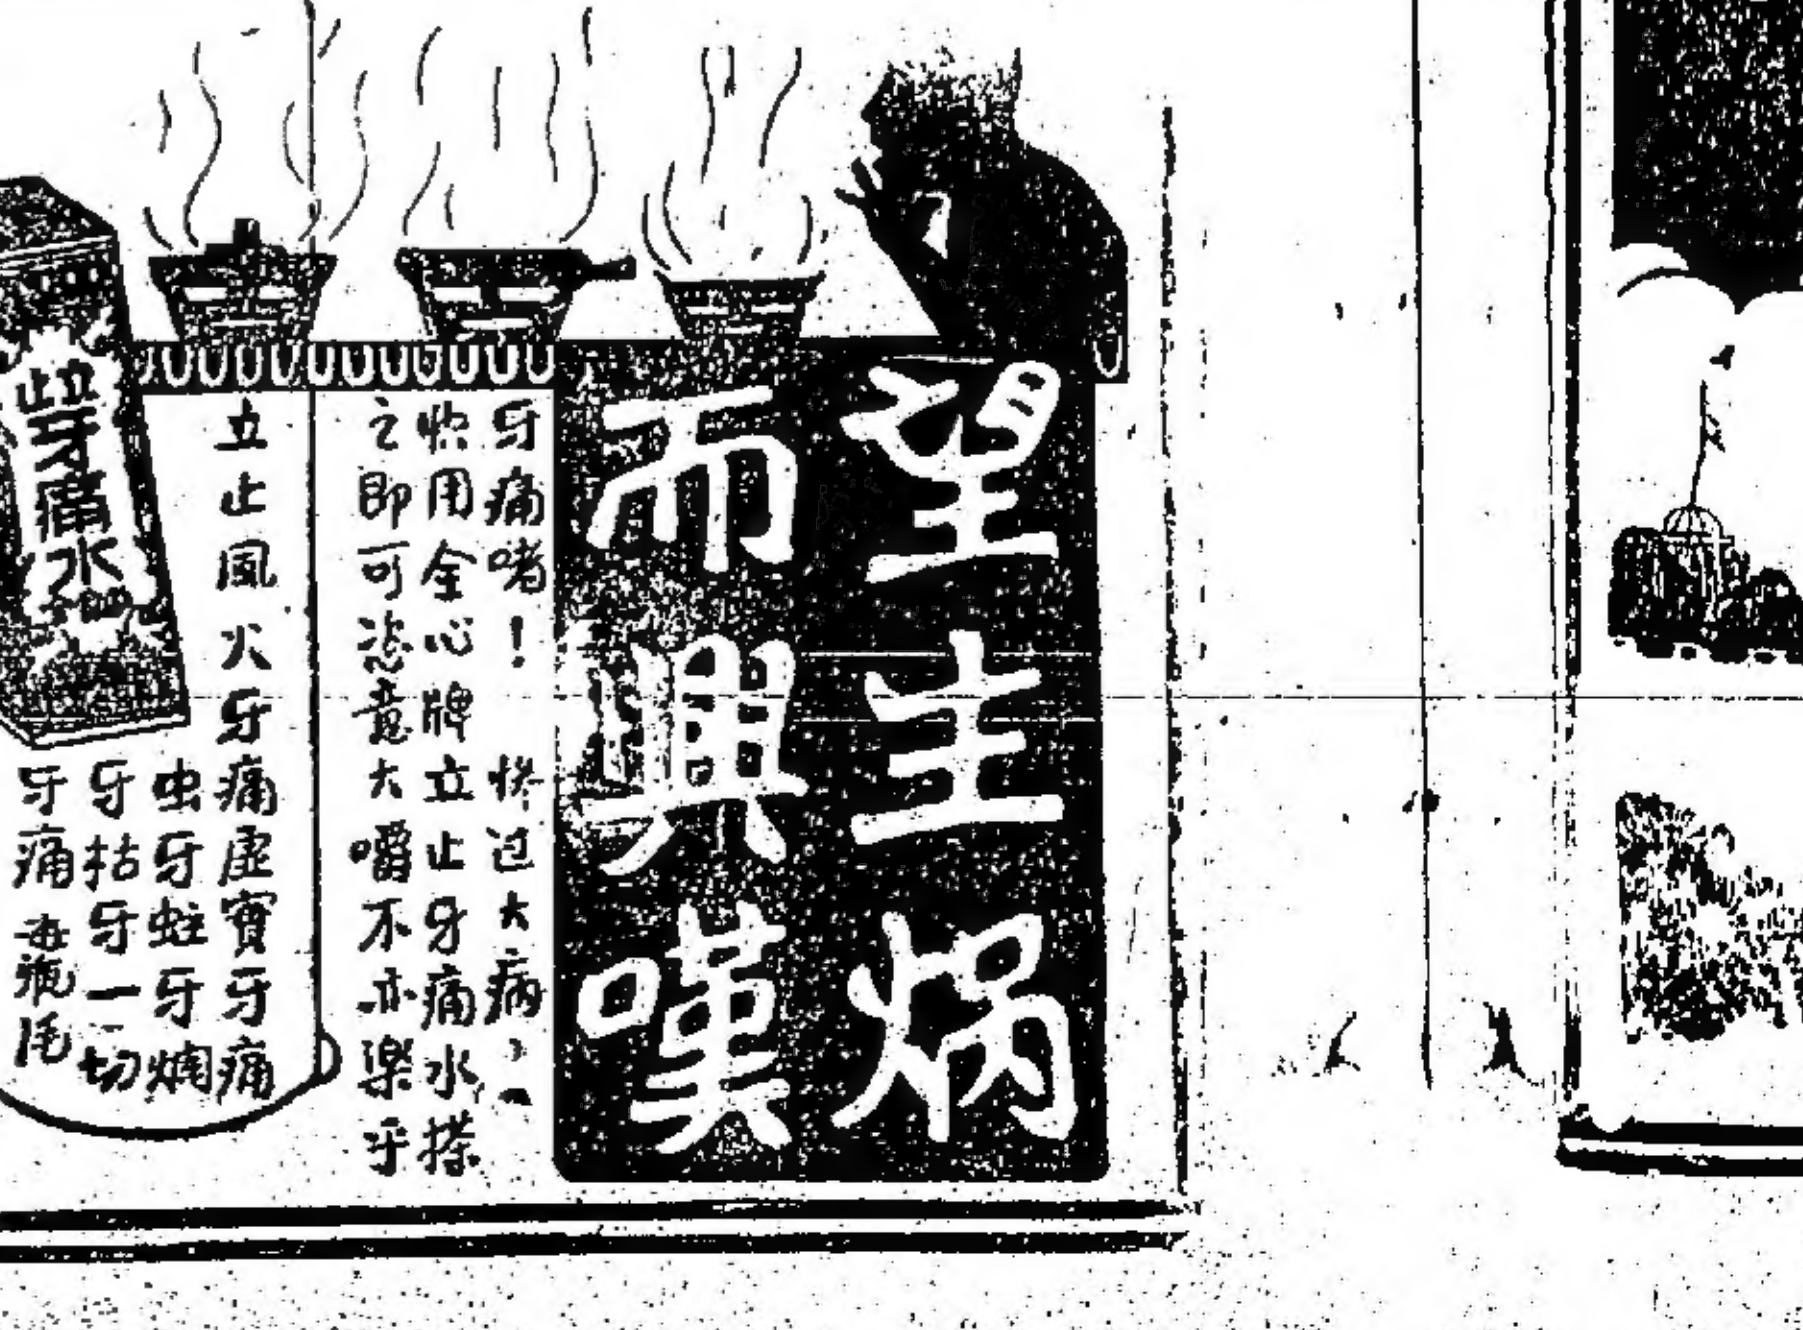 望圭焫
而興嘆
牙痛啫！惨过大病
快用金心牌立止牙痛水搽
之即可恣意大嚼不亦樂乎
立止風火牙痛虛實牙痛
虫牙蛀牙爛
牙枯牙一切
牙痛
立止牙痛水